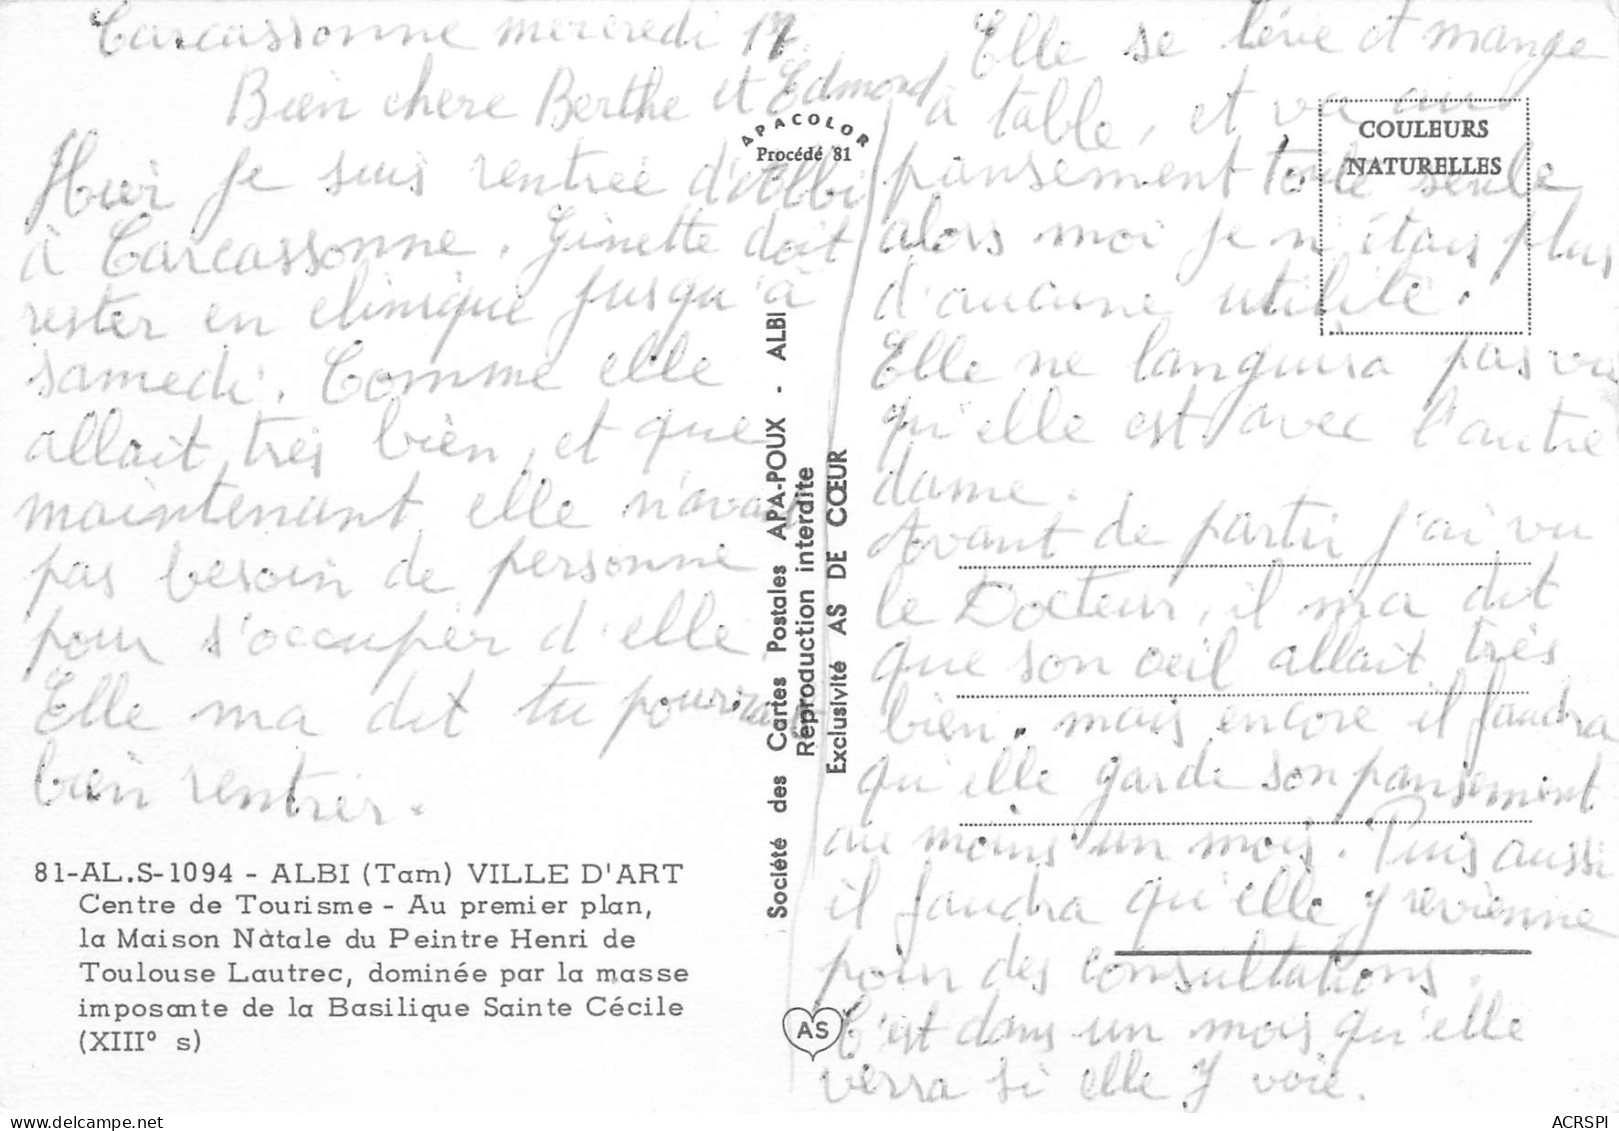 Carcassonne mercredi 17.
Bien chère Berthe et Edmond
Hier je suis rentrée d'Albi
à Carcassonne. Ginette doit
rester en clinique jusqu'à
samedi. Comme elle
allait très bien, et que
maintenant elle n'avait
pas besoin de personne
pour s'occuper d'elle
Elle ma dit tu pourrais
bien rentrer.
81-AL.S-1094 - ALBI (Tarn) VILLE D'ART
Centre de Tourisme - Au premier plan,
la Maison Natale du Peintre Henri de
Toulouse Lautrec, dominée par la masse
imposante de la Basilique Sainte Cécile
(XIII° s)
APACOLOR
Procédé 81
Société des Cartes Postales APA-POUX - ALBI
Reproduction interdite
Exclusivité AS DE CŒUR
AS
COULEURS
NATURELLES
Elle se lève et mange
à table, et va au
pansement toute seule
alors moi je n'étais plus
d'aucune utilité.
Elle ne languira pas vu
qu'elle est avec l'autre
dame.
Avant de partir j'ai vu
le Docteur, il ma dit
que son oeil allait très
bien. mais encore il faudra
qu'elle garde son pansement
au moins un mois. Puis aussi
il faudra qu'elle y revienne
pour des consultations.
C'est dans un mois qu'elle
verra si elle y voie.
ACRSPI